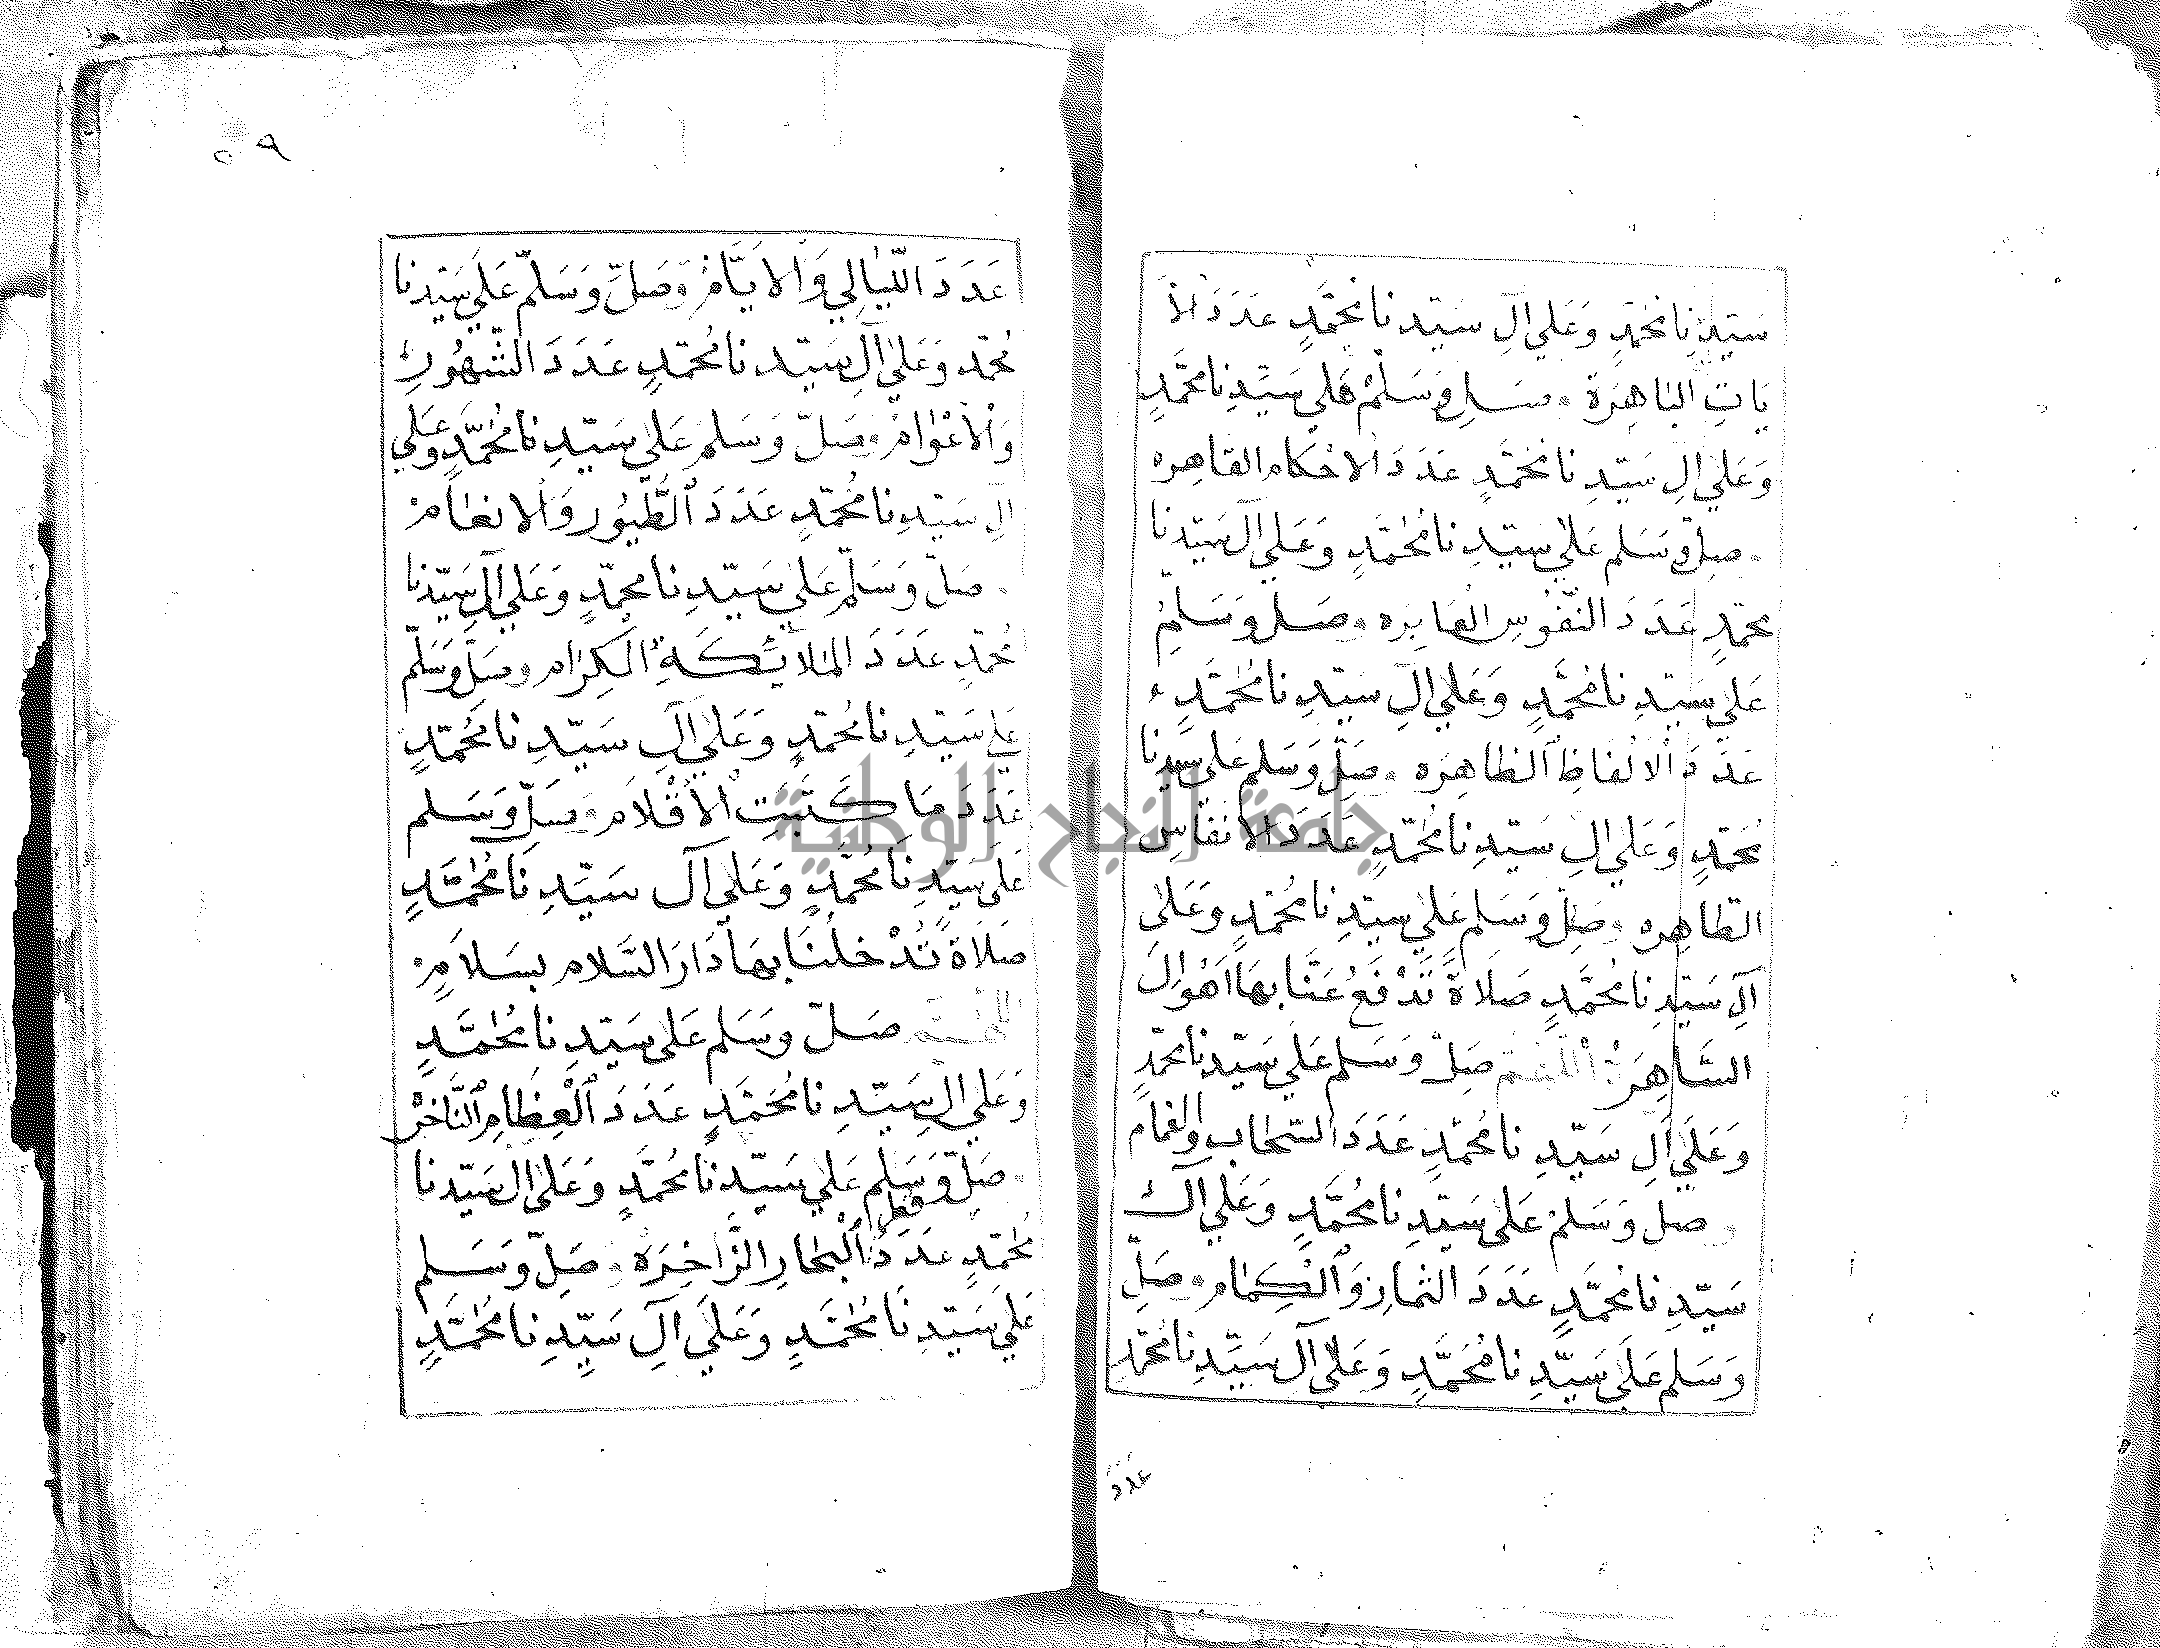 سَيّدِنَا مُحَمّدٍ وَعَلي الِ سَيّدِنا مُحَمَّدٍ عَدَدَ الأَ
يَاتِ البَاهِرَة صَلِ وَسَلِمْ عَلي سَيَّدِنا مُحَمَّدٍ
وَعَلي الِ سَيّدِنا مُحَمّدٍ عَدَدَ الاحْكام القاهِره
صلِّ وَسَلم عَلي سَيّدِ نا مُحَمّدٍ وَعَلي آل سَيّدِنا
محمّدٍ عَدَدَ النّفُوسِ العَابِره صَلِ وَسَلِمُ
عَلي سَيّدِ نا مُحمَّدٍ وَعَلي الِ سَيّدِ نا مُحَمّدٍ
عَدَدَ الالْفاظِ الظاهِرَه صَلِّ وَسَلم عَلي سيّدِنا
مُحَمّدٍ وَعَلي الِ سَيّدِ نا مُحَمّدٍ عَدَدَ الانفَاسِ
الطاهِره صَلِ وَسَلم عَلي سيّدِ نا محمّدٍ وَعَلى
آلِ سَيّدِ نا مُحمَّدٍ صَلاةً تَدْفَعُ عَنَّا بهَا اَهْوالَ
السَّاهِرَة اللهُمّ صَلّ وَسَلم عَلي سَيّدِنا محمّدٍ
وَعَلَي الِ سَيّدِ نا مُحمّدٍ عَدَدَ السَّحَابِ والغمام
صل وَسَلمْ عَلى سَيّدِ نا مُحُمَّدٍ وَعَلي ال
سَيّدِ نا مُحَمَّدٍ عَدَدَ الثمارِ وَالاكِمَام صَلّ
وَسَلم عَلَي سَيّدِ نا مُحَمَّدٍ وَعَلى آل سَيَّدِ نا مُحَمّدٍ
عَدَدَ
٥٩
عَدَدَ اللّيَالِي وَالايَّامْ وَصَلِّ وَسَلّم عَلَي سَيّدِنا
مُحَمّد وَعَلي آلِ سَيّدِ نا مُحَمّدٍ عَدَدَ الشُّهُورِ
وَالاعْوَامْ وصَلّ وَسَلم عَلي سَيّدِ نا مُحَمّدٍ وعَلي
الِ سَيّدِ نا مُحَمّدٍ عَدَدَ الطُّيُورِ وَالانعَامْ
صَلّ وَسَلّم عَلي سَيّدِ نا محمّدٍ وَعَلي آلِ سَيّدِنا
مُحمّدٍ عَدَدَ المَلائِكَةِ الكِرَام وصَلّ وَسَلّم
عَلي سَيّدِ نا مُحَمّدٍ وَعَلي الِ سَيّدِ نا مُحَمّدٍ
عَدَدَ مَا كَتَبَتِ الْأَقْلاَم وصَلّ وَسَلم
عَلَي سَيّدِ نا مُحَمّدٍ وَعَلَي آل سَيّدِ نا مُحَمَّدٍ
صَلاَةً تُدْخلُنَا بهَا دَارَ السَّلام بسَلاَمٍ
اللهُمّ صَلّ وسَلم عَلي سَيّدِ نا مُحَمَّدٍ
وَعَلَي الِ سَيّدِ نا مُحَمَّدٍ عَدَدَ الْعِظامِ النَّاخِرْ
صَلّ وَسَلم عَلي سَيّدِ نا مُحَمَّدٍ وَعَلَي ال سَيّدِنا
مُحَمّدٍ عَدَدَ قطر الْبحَارِ الزَّاخِرَة صَلّ وَسَلم
عَلي سَيّدِ نا مُحَمَّدٍ وَعَلَي الِ سَيِّدِ نا مُحَمَّدٍ
جامعة النجاح الوطنية